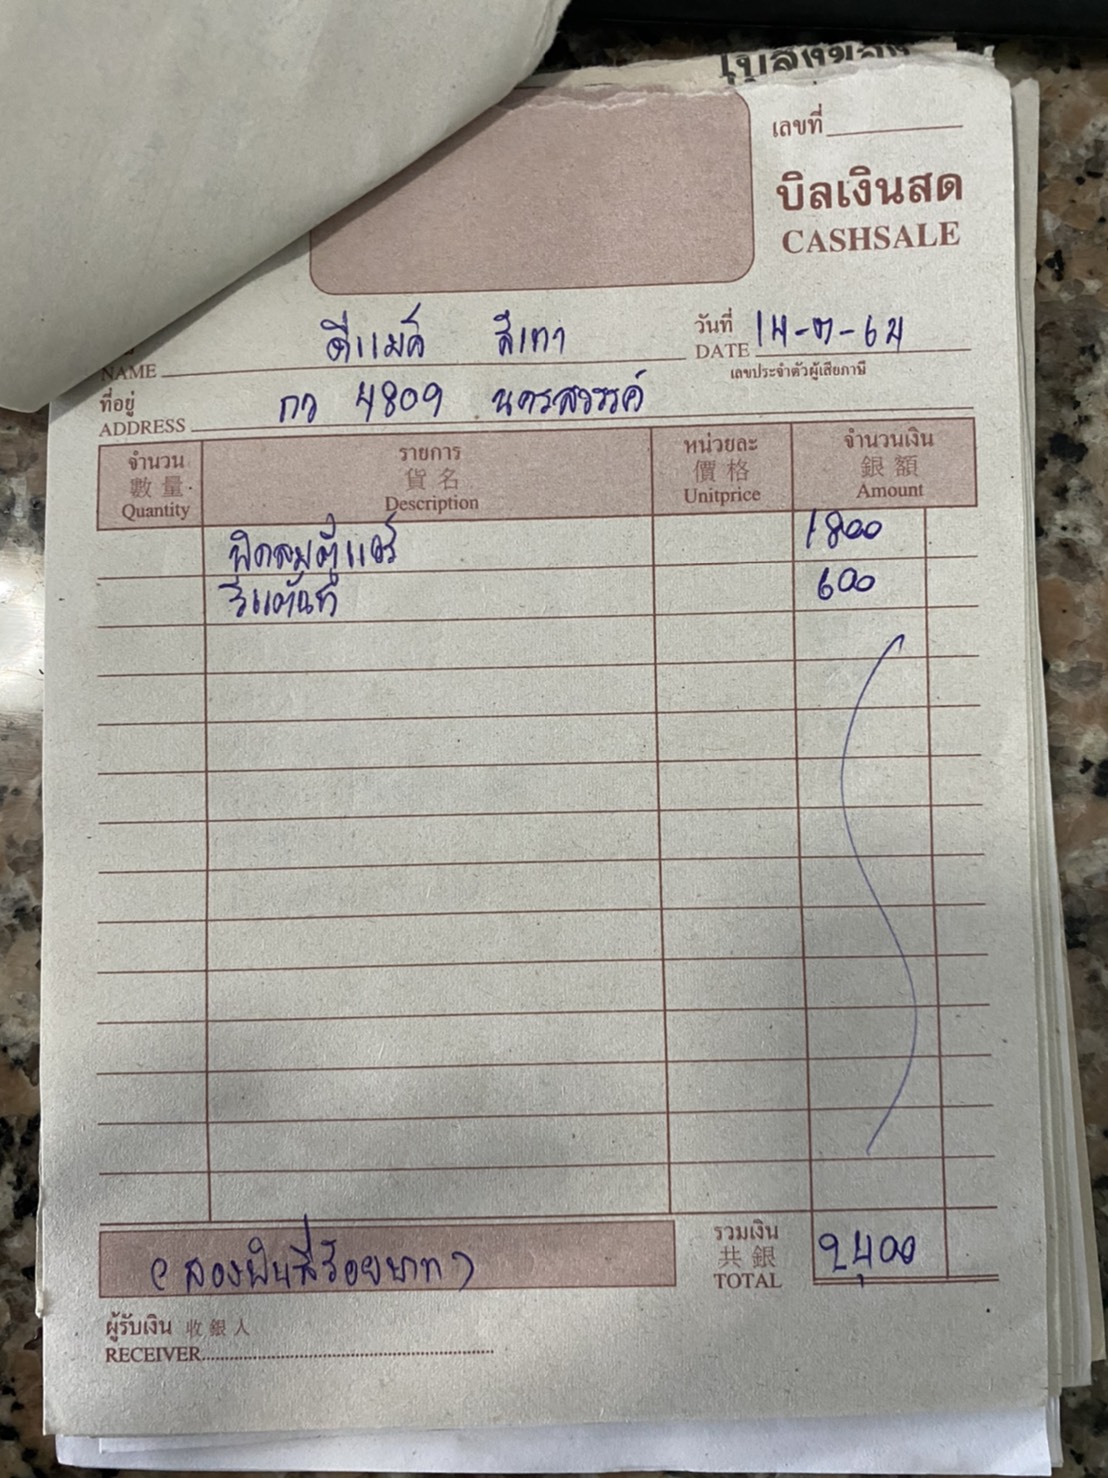 เลขที่
บิลเงินสด
CASHSALE
NAME ดีแมค สีเทา
วันที่ DATE 14-7-64
เลขประจำตัวผู้เสียภาษี
ที่อยู่ ADDRESS กว 4809 นครสวรรค์
จำนวน รายการ หน่วยละ จำนวนเงิน
數量 貨名 價格 銀額
Quantity Description Unitprice Amount
พัดลมตู้แอร์ 1800
600
รวมเงิน
共銀
TOTAL 2400
(สองพันสี่ร้อยบาท)
ผู้รับเงิน 收銀人
RECEIVER